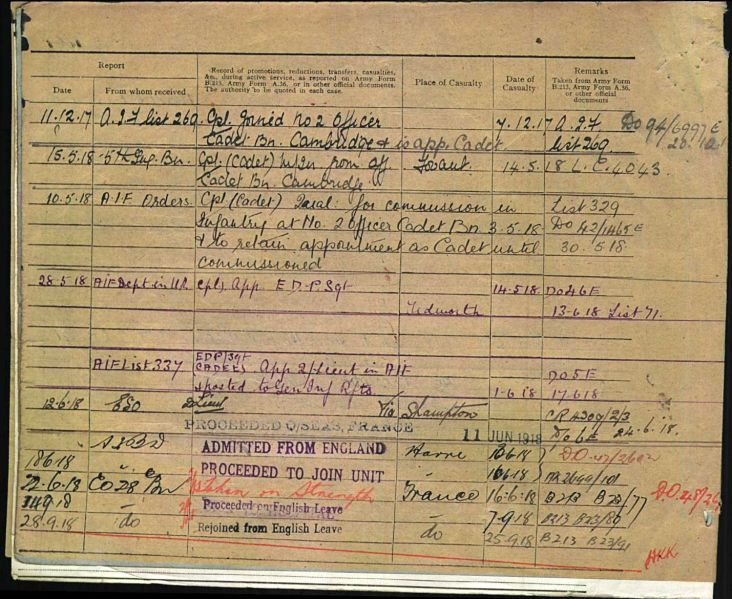 Report
Date
From whom received
Record of promotions, reductions, transfers, casualties,
&c., during active service, as reported on Army Form
B.213, Army Form A.36, or in other official documents.
The authority to be quoted in each case.
Place of Casualty
Date of
Casualty
Remarks
Taken from Army Form
B.213, Army Form A.36,
or other official
documents
11.12.17 A.I.F list 269 Cpl Joined No 2 Officer 7.12.17 A.I.F DO 94/6997E
Cadet Bn. Cambridge & is app. Cadet list 269
15.5.18 5th Trg. Bn. Cpl (Cadet) m/in from off Fovant 14.5.18 L.C. 4043
Cadet Bn. Cambridge
10.5.18 A.I.F Orders Cpl (Cadet) Qual: for commission in List 329
Infantry at No. 2 Officer Cadet Bn 3.5.18 DO 42/1465E
& to retain appointment as Cadet until 30.5.18
commissioned
28.5.18 AIF Dept in U.K. Cpl, App. E.D.P Sgt 14.5.18 DO 46E
Tidworth 13.6.18 List 71.
AIF List 337 EDP/Sgt
CADET App 2/Lieut in AIF DO 5E
& posted to Gen Inf Rfts 1.6.18 17.6.18
12.6.18 ESO 2 Lieut Via Shampton CR 4309/2/3
PROCEEDED O/SEAS, FRANCE 11 JUN 1918 DO 6E 24.6.18.
AIBD ADMITTED FROM ENGLAND Havre DO
18.6.18 PROCEEDED TO JOIN UNIT 16.6.18
22.6.18 CO 28 Bn Taken on Strength France 16.6.18 B213 B23/77 DO 48/
Proceeded on English Leave 7.9.18 B213
28.9.18 do Rejoined from English Leave do 25.9.18 B213 B23/91
HKK.